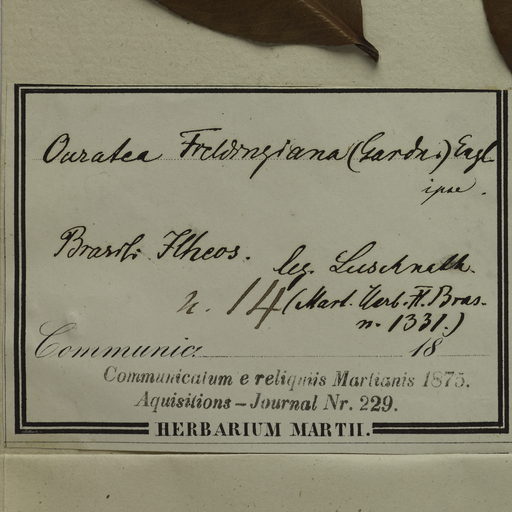 Ouratea Fieldingiana (Gardn.) Engl
ipse.
Brasil: Ilheos.
leg. Luschnath.
n. 14 (Mart. Herb. Fl. Bras.
n. 1331.)
Communic 18
Communicatum e reliquiis Martianis 1875.
Aquisitions-Journal Nr. 229.
HERBARIUM MARTII.